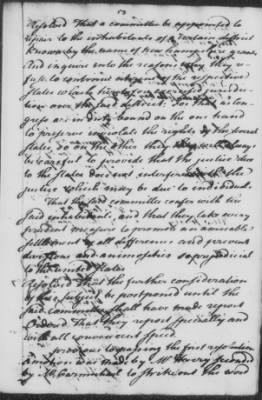 Resolved That a committee be appointed to
repair to the inhabitants of a certain district
known by the name of New hampshire grants
And enquire into the reasons why they re-
fuse to continue citizens of the respective
States which
tion over the said district. For that as Con-
gress are in duty bound on the one hand
to preserve inviolate the rights of the several
States, so on the other they will always
be careful to provide that the justice due
to the States does not interfere with the
justice which may be due to individuals.
That the said committee confer with the
said inhabitants, and that they take every
prudent measure to promote an amicable
settlement of all differences and prevent
divisions and animosities so prejudicial
to the united States
Resolved That the further consideration
of this subject be postponed until the
said committee shall have made report
Ordered That they report specially and
with all convenient speed.
previous to passing the first resolution
A motion was made by Mr seconded
by Mr Carmichael to strike out the word